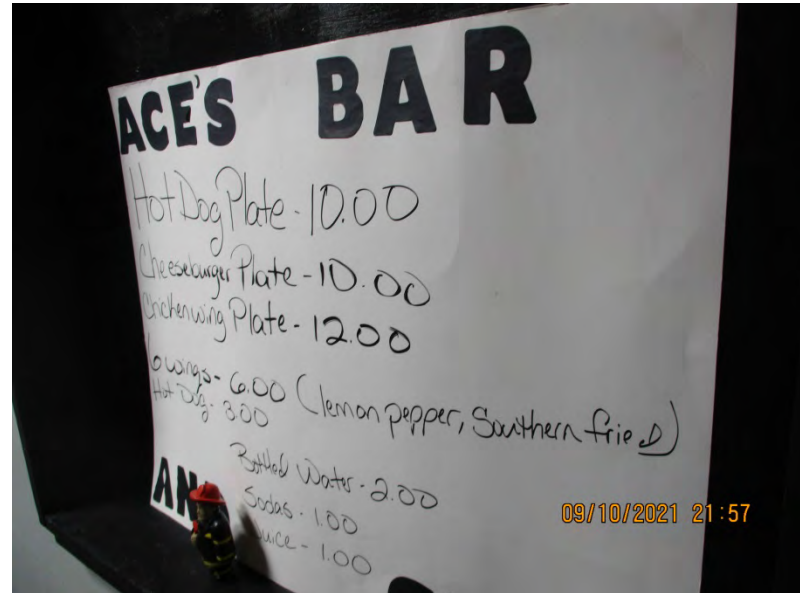 ACE'S BAR
Hot Dog Plate - 10.00
Cheeseburger Plate - 10.00
Chickenwing Plate - 12.00
6 wings - 6.00 (lemon pepper, Southern fried)
Hot Dog - 3.00
Bottled Water - 2.00
AN
Sodas - 1.00
Juice - 1.00
09/10/2021 21:57